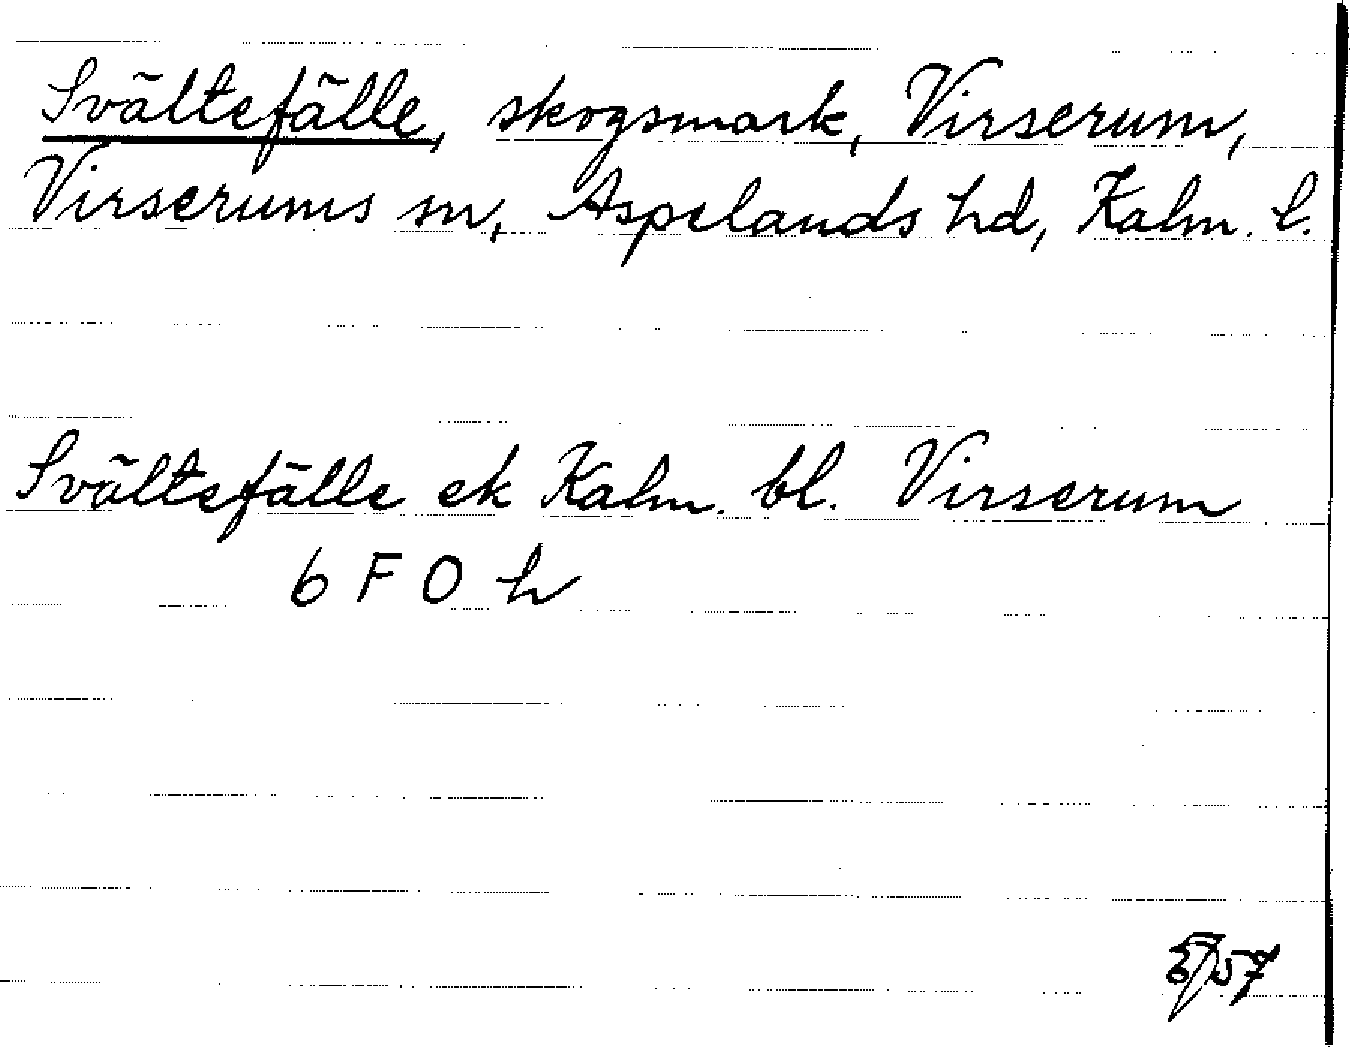 Svältefälle, skogsmark, Virserum,
Virserums sn, Aspelands hd, Kalm. l.
Svältefälle ek Kalm. bl. Virserum
6 F 0 h